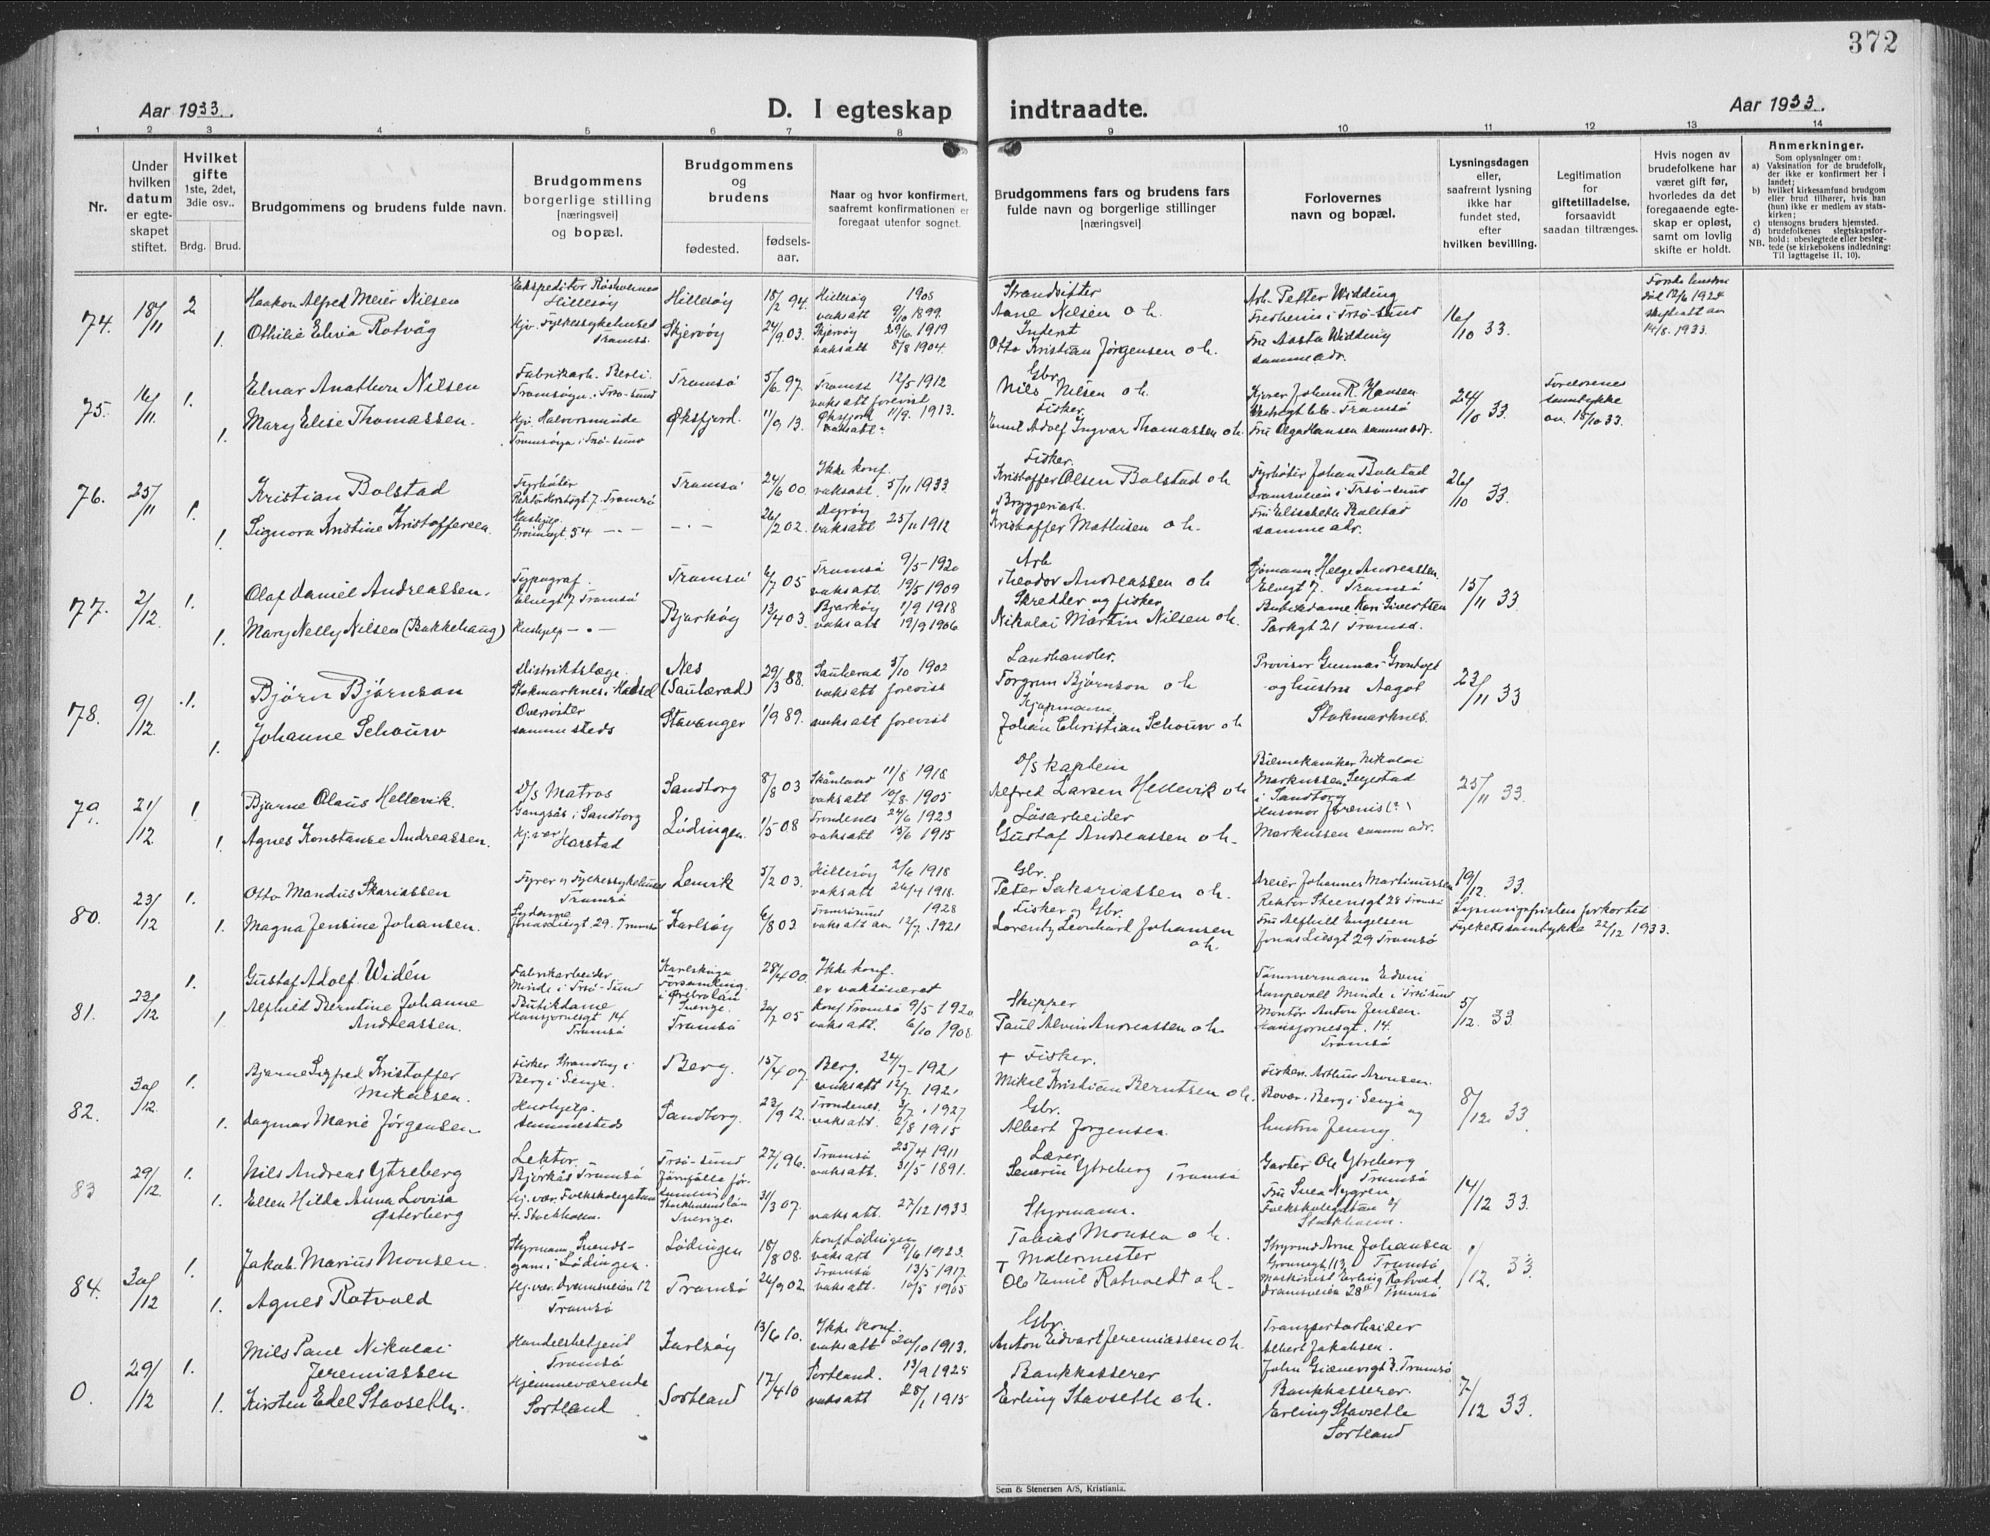 372
Aar 1933.
D. I egteskap indtraadte.
Aar 1933.
1 2 3 4 5 6 7 8 9 10 11 12 13 14
Nr.
Under hvilken datum er egte-skapet stiftet.
Hvilket gifte
1ste, 2det, 3die osv..
Brdg. Brud.
Brudgommens og brudens fulde navn.
Brudgommens borgerlige stilling [næringsvei] og bopæl.
Brudgommens og brudens
fødested.
fødsels-aar.
Naar og hvor konfirmert, saafremt konfirmationen er foregaat utenfor sognet.
Brudgommens fars og brudens fars fulde navn og borgerlige stillinger [næringsvei]
Forlovernes navn og bopæl.
Lysningsdagen eller, saafremt lysning ikke har fundet sted, efter hvilken bevilling.
Legitimation for giftetilladelse, forsaavidt saadan tiltrænges.
Hvis nogen av brudefolkene har været gift før, hvorledes da det foregaaende egte-skap er opløst, samt om lovlig skifte er holdt.
Anmerkninger.
Som oplysninger om:
a) Vaksination for de brudefolk, der ikke er konfirmert her i landet;
b) hvilket kirkesamfund brudgom eller brud tilhører, hvis han (hun) ikke er medlem av stats-kirken;
c) utensogns bruders hjemsted.
d) brudefolkenes slegtskapsfor-hold; ubeslegtede eller besleg-tede (se kirkebokens indledning:
NB. Til Iagttagelse II. 10).
74. 18/11 2 Haakon Alfred Meier Nilsen
Ekspeditør
Hillesøy
Hillesøy 18/2 94. Hillesøy 1905
vaksatt 9/10 1899.
Strandsitter
Aane Nilsen o h.
Arb. Petter Widding
Fredheim i Trsø-sund
16/10 33.
Første hustru
død 12/6 1924
skifteatt av
14/8. 1933.
1. Othilie Elvia Rotvåg
Hj. Fylkessykehuset
Tromsø.
Skjervøy 24/9 03. Skjervøy 29/6. 1919
vaksatt 8/8 1904.
Inderst
Otto Kristian Jørgensen o h.
Fru Aasta Widding
samme adr.
75. 16/11 1. Einar Anathon Nilsen
Fabrikarb.
Tromsøyn. i Trsø-sund
Tromsø 5/6 97. Tromsø 12/5 1912
vaksatt forevist
Gbr.
Nils Nilsen o h.
Kjører Johan R. Hansen
Tromsø
24/10 33.
Foreldrenes
samtykke
av 15/10 33.
1. Mary Elise Thomassen.
Hj. Halvorsminde
Tromsøya i Trsø-sund
Øksfjord. 11/9 13. Øksfjord 11/9. 1913.
vaksatt
Fisker.
Emil Adolf Ingvar Thomassen o h.
Fru Olga Hansen samme adr.
76. 25/11 1. Kristian Bolstad
Fyrbøter
7. Tromsø
Tromsø 24/6 00. Ikke konf.
vaksatt. 5/11 1933.
Fisker.
Kristoffer Olsen Bolstad o h.
Fyrbøter Johan Bolstad
Dramsveien i Trsø-sund
26/10 33.
1. Signora Kristine Kristoffersen.
Hushjelp.
Grønnegt. 54 — . —
— . — 26/2 02. Dyrøy
vaksatt 25/11 1912
Bryggeriarb.
Kristoffer Mathisen o h.
Fru Elisabeth Bolstad
samme adr.
77. 2/12 1. Olaf Daniel Andreassen.
Typograf.
Elvegt 7 Tromsø
Tromsø 6/7 05 Tromsø 9/5 - 1920
vaksatt. 19/5 1909
Arb
Theodor Andreassen o h
Sjømann Helge Andreassen.
Elvegt 7. Tromsø
15/11 33
1. Mary Nelly Nilsen (Bakkehaug)
Hushjelp — . —
Bjarkøy 13/4 03. Bjarkøy 1/9 1918
vaksatt 19/9 1906.
Skredder og fisker
Nikolai Martin Nilsen o h.
Butikdame Kari Sivertsen
Parkgt 21 Tromsø.
78. 9/12 1. Bjørn Bjørnson
Distriktslæge
Stokmarknes, i Hadsel
Nes
(Sauherad) 29/3 88. Sauherad 5/10 1902
vaksatt forevist
Landhandler.
Torgrim Bjørnson o h
Provisor Gunnar Grøntoft
og hustru Aagot
Stokmarknes.
23/11 33
1. Johanne Schouw
Oversøster
sammesteds
Stavanger 1/9 89. vaksatt forevist
Kjøpmann.
Johan Christian Schouw o h
79. 21/12 1. Bjarne Olaus Hellevik.
D/s Matros
Gangsås i Sandtorg
Sandtorg 8/8 03 Skånland 11/8 1918
vaksatt 10/8. 1905
D/s kaptein
Alfred Larsen Hellevik o h
Bilmekaniker Nikolai
Markussen
i Sandtorg
25/11 33.
1. Agnes Konstanse Andreassen.
Hj.vær
Harstad
Lødingen. 1/5 08 Trondenes 24/6 1923
vaksatt 13/6 1915
Løsarbeider
Gustaf Andreassen o h.
Husmor
Markussen samme adr.
80. 23/12 1. Otto Mandus Skariassen
Fyrer v Fylkessykehuset
Tromsø
Lenvik 5/2 03. Hillesøy 2/6 1918
vaksatt 26/4 1918.
Gbr.
Peter Sakariassen o h.
Johannes Martinussen
Rektor Steensgt 28 Tromsø
19/12. 33.
Lysningsfristen forkortet
Fylkets samtykke 22/12 1933.
1. Magna Jensine Johansen.
Jonas Liesgt. 29. Tromsø
Karlsøy 6/8 03. Tromsøsund 1928
vaksatt av 12/7. 1921
Fisker og Gbr.
Lorentz Leonhard Johansen
o h.
Fru Alfhild Engelsen
Jonas Liesgt 29 Tromsø
81. 23/12 1. Gustaf Adolf Widén
Fabrikarbeider
Minde i Trsø-sund
Karlskoga
Församling
i Örebrolän
Sverige. 28/4 00. Ikke konf.
er vaksineret
Tømmermann Edvin
Minde i Trsø-sund
5/12. 33.
1. Alfhild Berntine Johanne
Andreassen.
Butikdame
Hansjordnesgt 14
Tromsø
Tromsø 20/7 05 konf Tromsø 9/5 1920
vaksatt. 6/10 1908
Skipper
Paul Alvin Andreassen o h.
Montør Anton Jensen
Hansjordnesgt. 14.
Tromsø
82. 30/12 1. Bjarne Sigfred Kristoffer
Mikalsen.
Fisker Strandby i
Berg i Senja.
Berg. 15/4 07. Berg. 24/7 - 1921
vaksatt 12/7. 1921
+ Fisker.
Mikal Kristian Berntsen o h.
Fisker. Arthur Aronsen.
Bovær. Berg i Senja og
hustru Jenny.
8/12. 33
1. Dagmar Marie Jørgensen
Hushjelp.
sammesteds
Sandtorg. 23/9 12. Trondenes. 3/7. 1927
vaksatt. 2/8 1915
Gbr.
Albert Jørgensen.
83 29/12 1. Nils Andreas Ytreberg
Lektor
Bjørkås Tromsø
Trsø-sund 27/1 96. Tromsø 25/4 1911
vaksatt. 31/5 1891.
Lærer
Severin Ytreberg Tromsø
Gartner Ole Ytreberg
Tromsø
14/12 33.
1. Ellen Hilda Anna Lovisa
Østerberg
Hj. vær. Folkskolegatan
4. Stockholm.
Stockholmslän
Sverige. 31/3 07. vaksatt. 27/12 1933
Styrmann.
Fru Svea Nygren
Folkskolegatan 4
Stockholm.
84. 30/12 1. Jakob Marius Monsen.
Styrmann
i Lødingen.
Lødingen 18/8 08. konf Lødingen
vaksatt 9/6 1923.
Tobias Monsen o h.
Styrmd Arne Johansen
Grønnegt 113 Tromsø
1/12. 33.
1. Agnes Rotvold
Hj. vær. Dramsveien 12
Tromsø
Tromsø 26/9 02 Tromsø 13/5 1917.
vaksatt. 10/5 1905
+ Malermester
Ole Emil Rotvoldt o h.
Maskinist Erling Rotvold
Dramsveien 28 Tromsø
0. 29/12 1. Nils Paul Nikolai
Jeremiassen
Handelsbetjent
Tromsø
Karlsøy 13/6 10. Ikke konf.
vaksatt 20/10 1913.
Gbr.
Anton Edvart Jeremiassen o h.
Transportarbeider
Albert Jakobsen.
John Giæverigt 3. Tromsø
7/12 33.
1. Kirsten Edel Stavseth.
Hjemmeværende
Sortland
Sortland 17/4 10 Sortland. 13/9 1925
vaksatt 28/1 1915
Bankkasserer
Erling Stavseth o h.
Bankkasserer
Erling Stavseth
Sortland
Sem & Stenersen A/S, Kristiania.